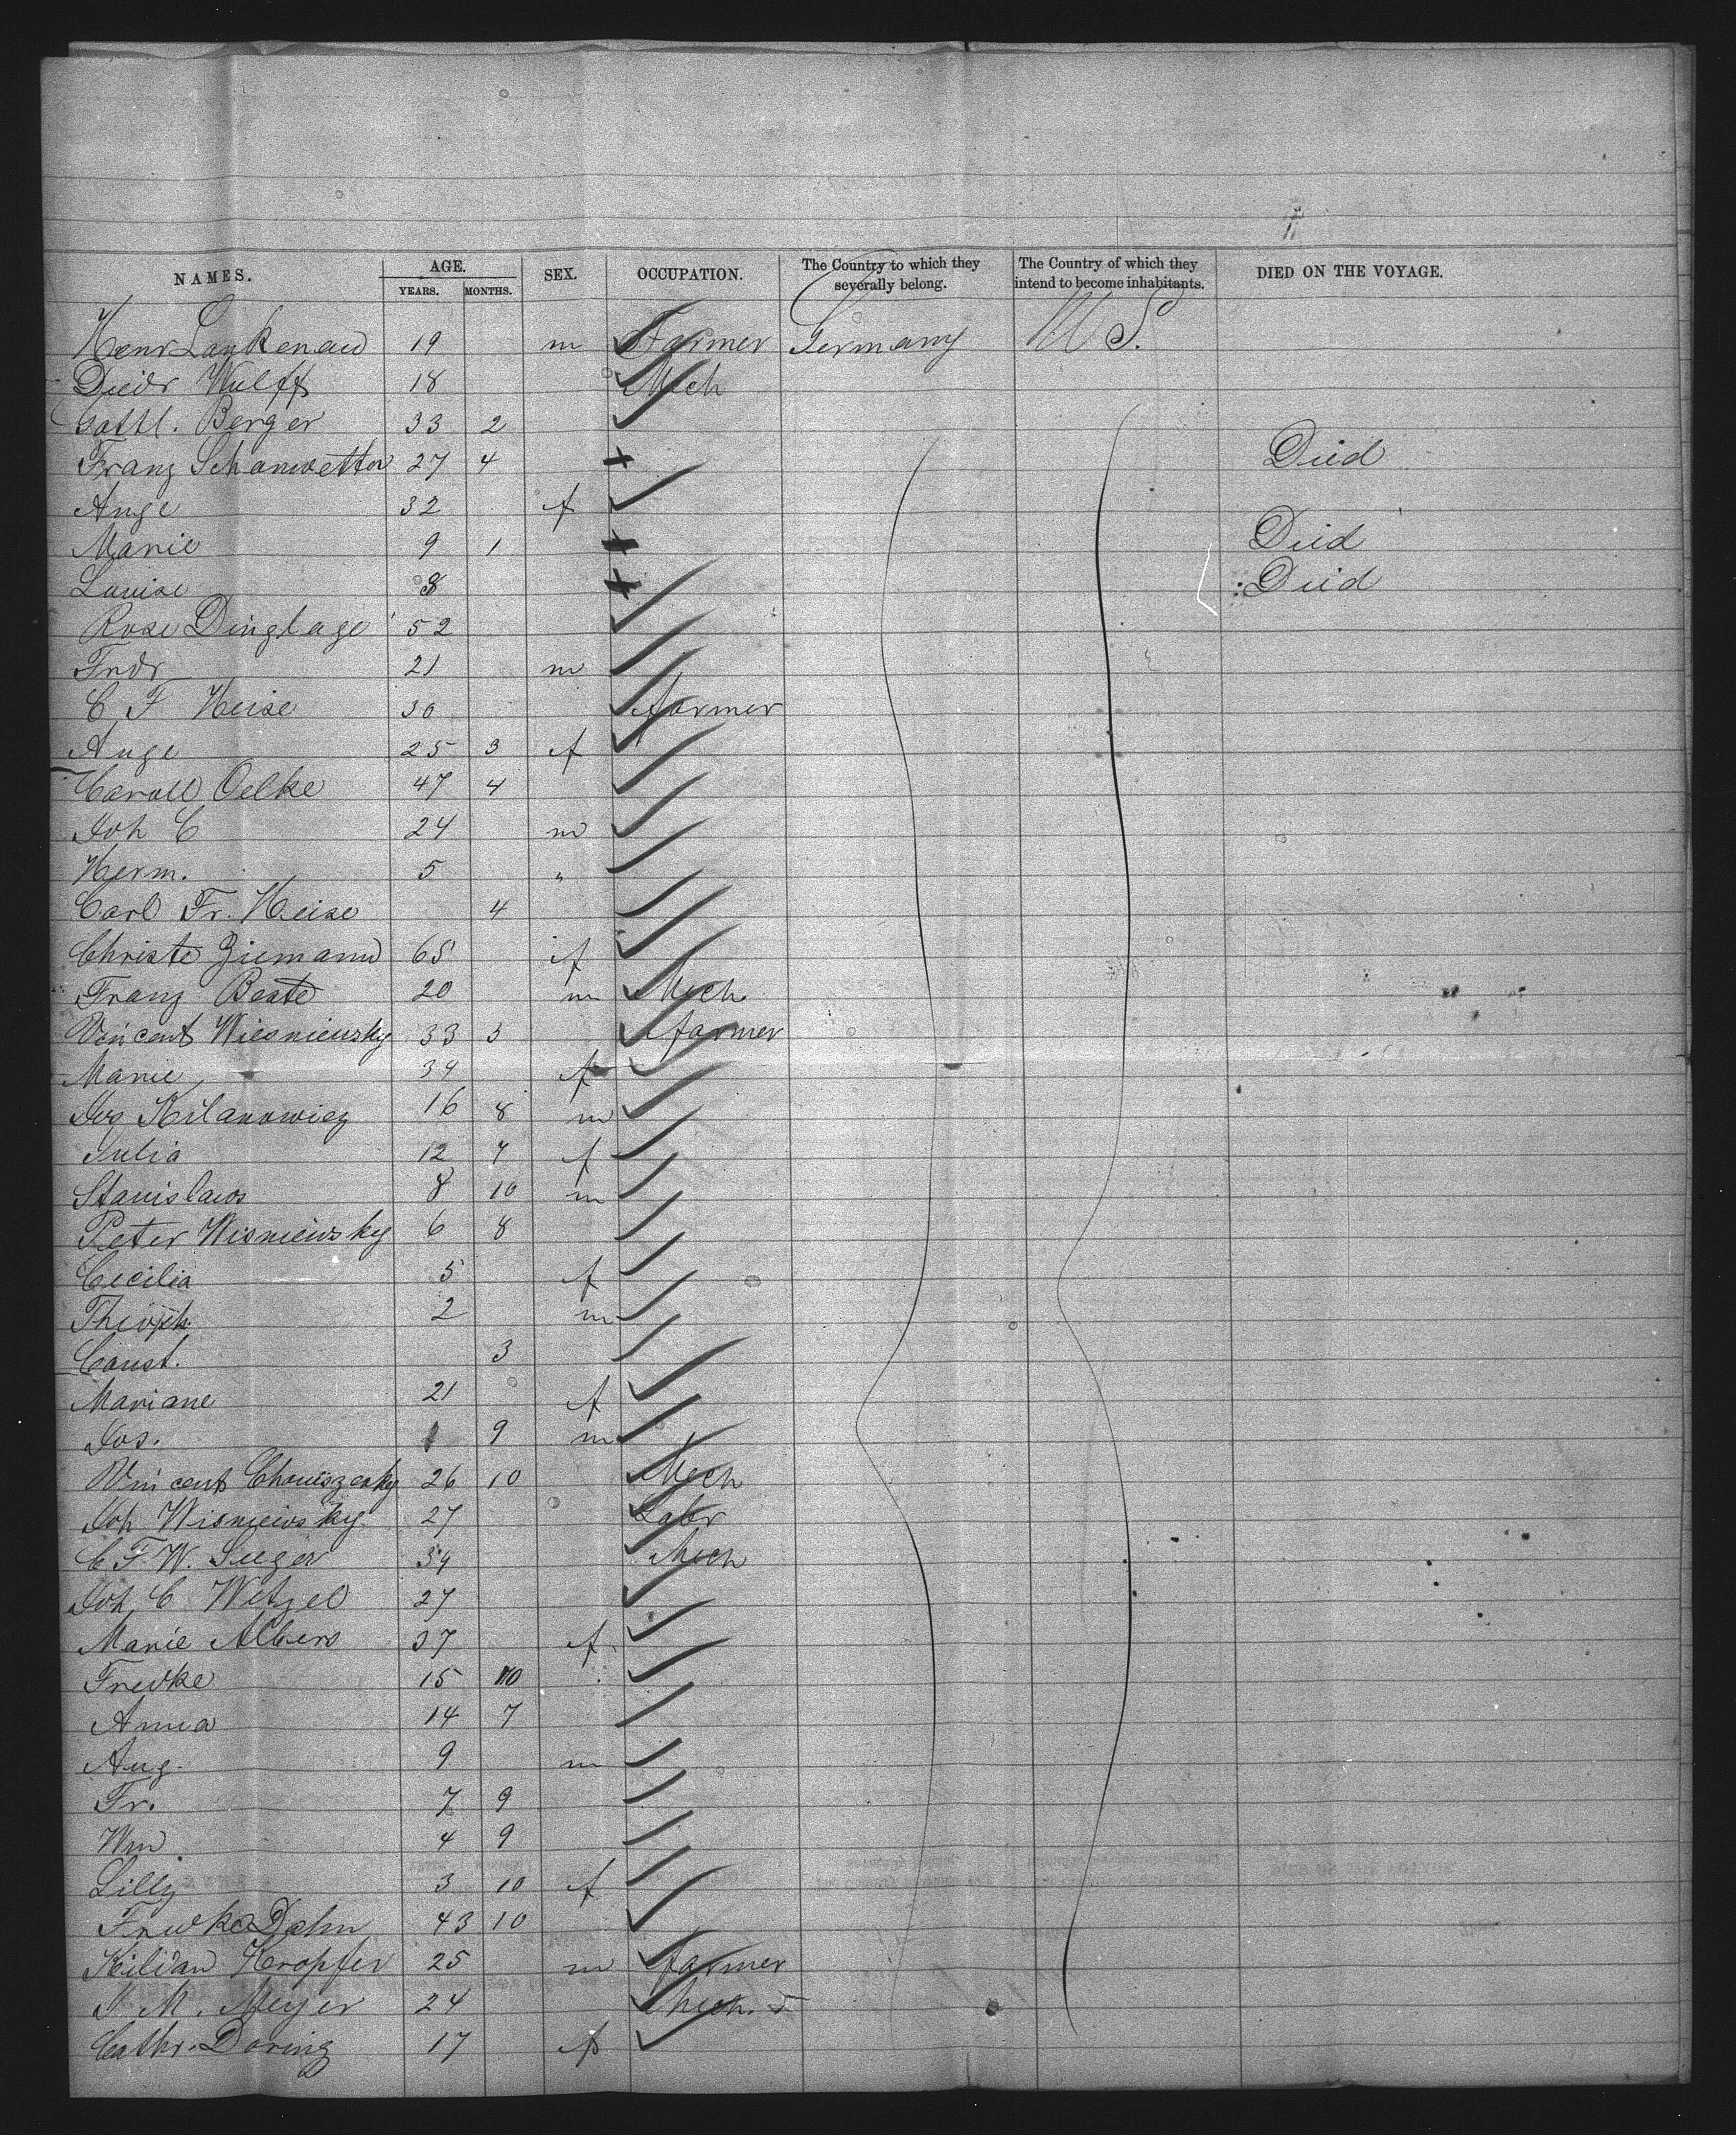 NAMES. AGE. YEARS. MONTHS. SEX. OCCUPATION. The Country to which they severally belong. The Country of which they intend to become inhabitants. DIED ON THE VOYAGE.
Henr Lankenau 19 m Farmer Germany U S.
Diedr Wulff 18 Mech
Gottl. Berger 33 2
Franz 27 4 Died
Auge 32 f
Marie 9 1 Died
Louise 8 Died
Rose Dinglage 52
Frdr 21 m
C F Heise 30 farmer
Auge 25 3 f
Oelke 47 4
Joh C 24 m
Herm. 5 "
Carl Fr. Heise 4
Christe Ziemann 65 f
Franz Beate 20 m Mech
Vincent Wiesniewsky 33 3 farmer
Marie 34 f
Jos Kilanowicz 16 8 m
Julia 12 7 f
Stanislaus 8 10 m
Peter Wisniewsky 6 8
Cecilia 5 f
Theoph 2 m
Const. 3
Mariane 21 f
Jos. 9 m
Vincent 26 10 Mech
Joh Wisniewsky 27 Labr
C F W. Seeger 34 Mech
Joh C Wetzel 27
Marie Albers 37 f
Fredke 15 10
Anna 14 7
Aug. 9 m
Fr. 7 9
Wm. 4 9
Lilly 3 10 f
Dahn 43 10
Kilian Kropfer 25 m farmer
M. Meyer 24 Mech.
Cathr. Doring 17 f